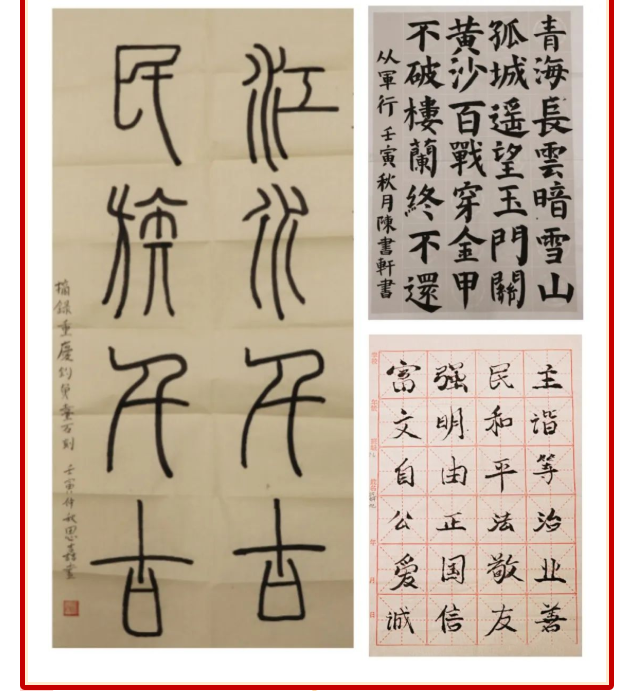 江水千古
民族千古
摘錄重慶钓魚臺石刻 壬寅仲秋思嘉書
青海長雲暗雪山
孤城遥望玉門關
黄沙百戰穿金甲
不破樓蘭終不還
从軍行 壬寅秋月陳書軒書
富强民主
文明和谐
自由平等
公正法治
爱国敬业
诚信友善